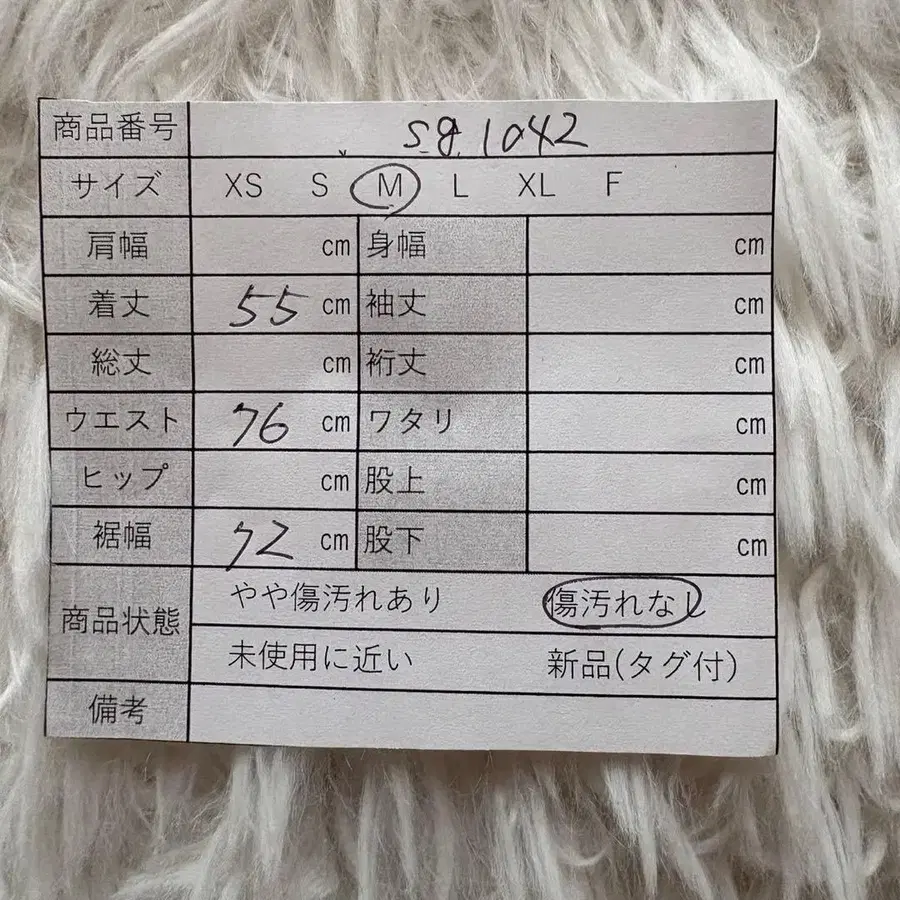 商品番号 sg1042
サイズ XS S M L XL F
肩幅 cm 身幅 cm
着丈 55 cm 袖丈 cm
総丈 cm 裄丈 cm
ウエスト 76 cm ワタリ cm
ヒップ cm 股上 cm
裾幅 72 cm 股下 cm
商品状態 やや傷汚れあり 傷汚れなし
未使用に近い 新品(タグ付)
備考